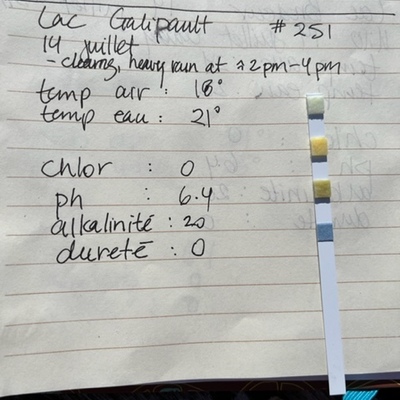 Lac Galipault # 251
14 juillet
- clearing, heavy rain at ≈ 2pm-4pm
temp air : 18°
temp eau : 21°
chlor : 0
ph : 6.4
alkalinité : 20
dureté : 0